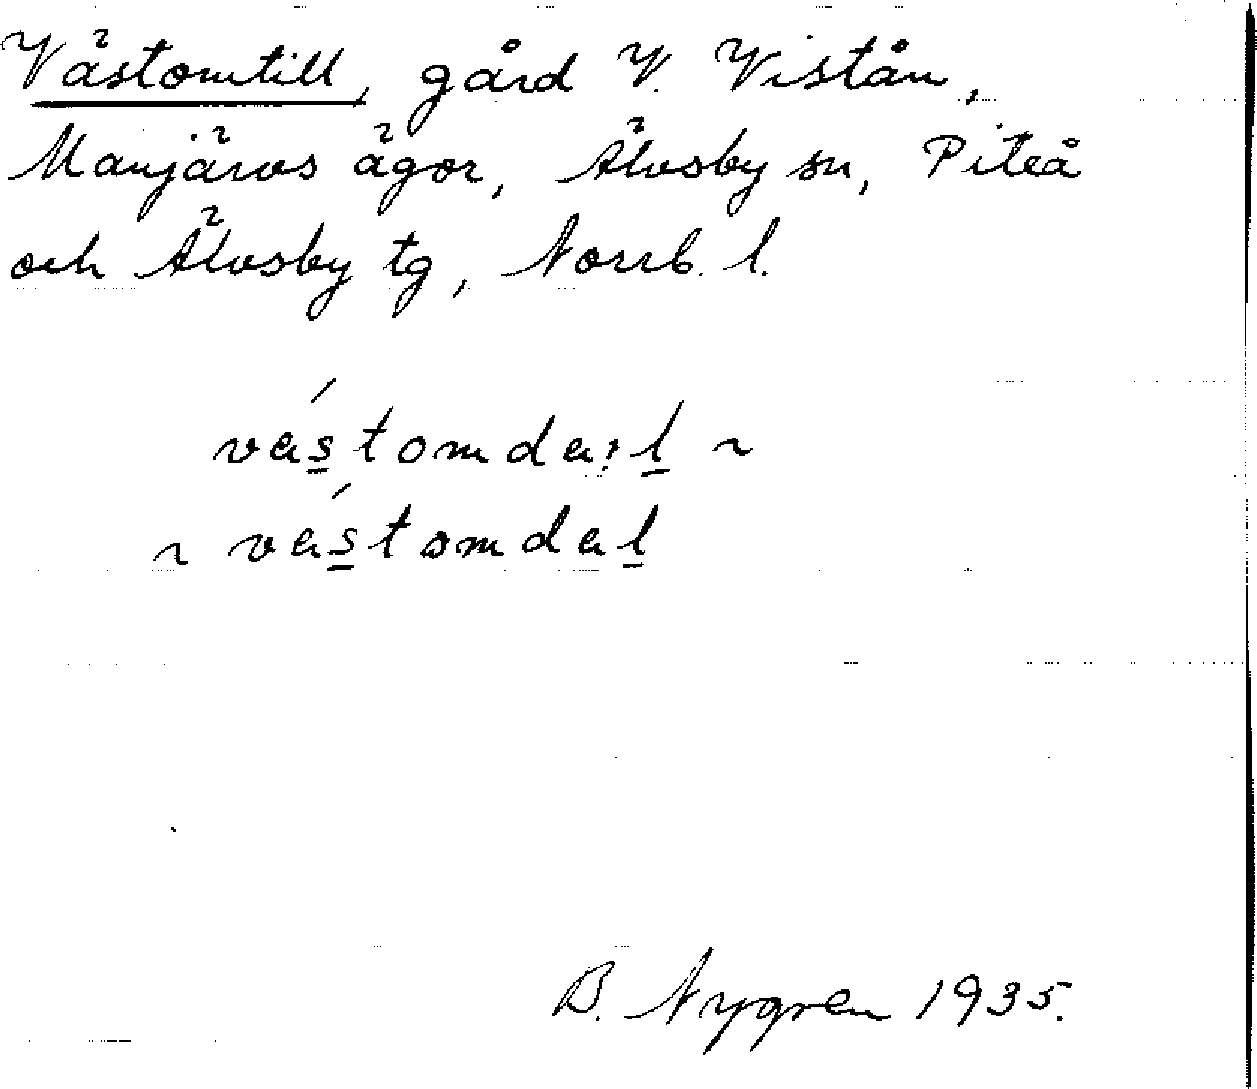 Västomtill, gård V. Vistån,
Manjärvs ägor, Älvsby sn, Piteå
och Älvsby tg, Norrb. l.
vás̲tomdaːl̲ ~
~ vás̲tomdal̲
B. Nygren 1935.